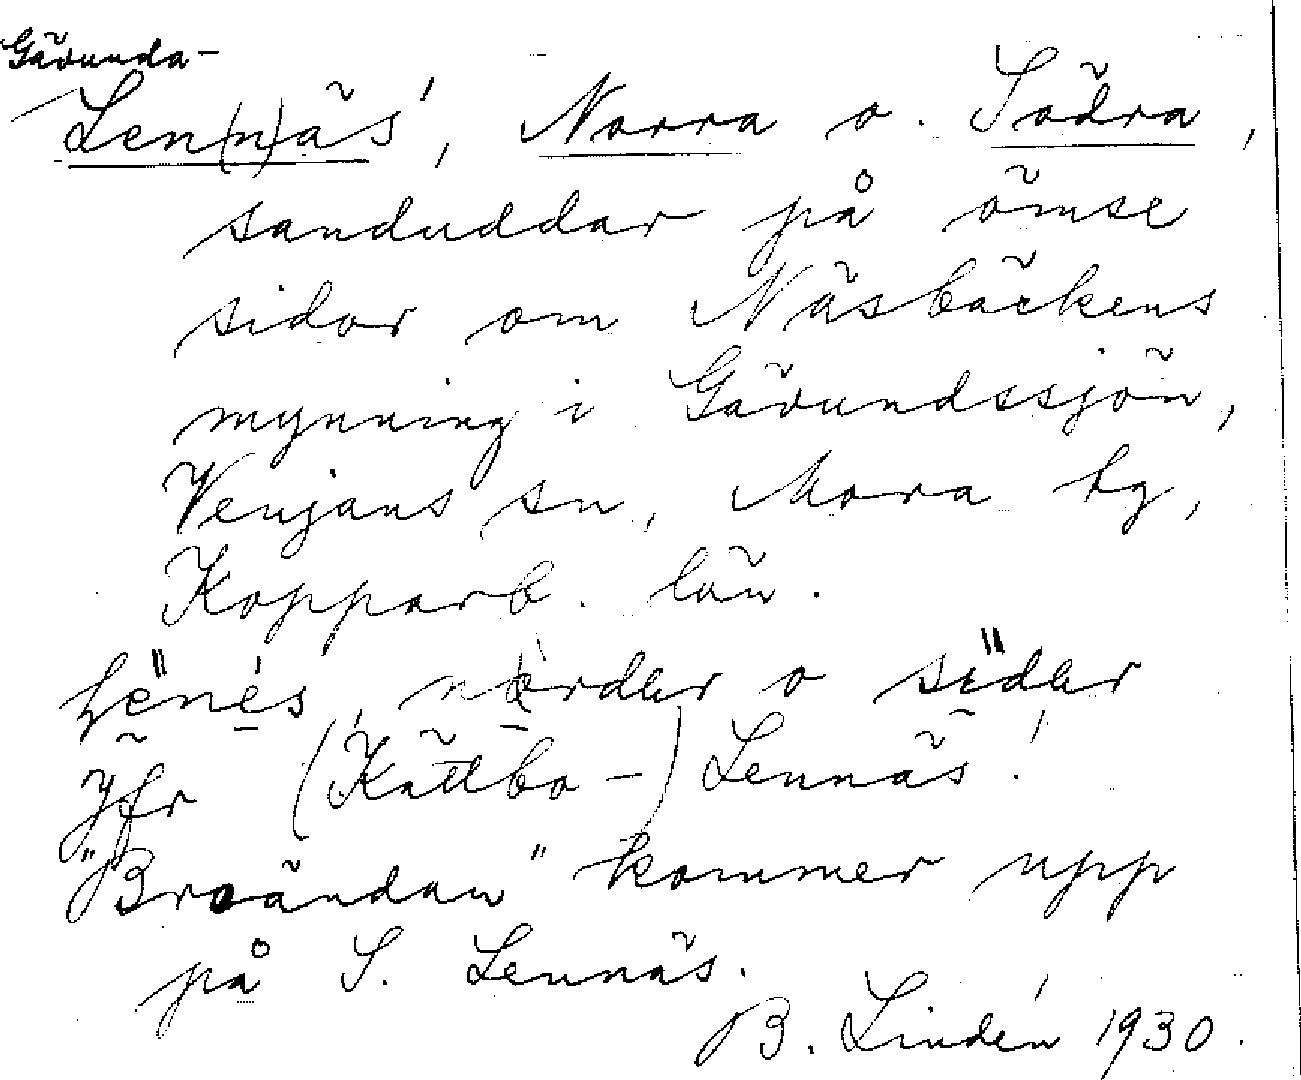 Gävunda-
Len(n)äs', Norra o. Södra,
sanduddar på ömse
sidor om Näsbäckens
mynning i Gävundssjön,
Venjans sn, Mora tg,
Kopparb. län.
o
Jfr (Kättbo-) Lennäs!
"Broändan" kommer upp
på S. Lennäs.
B. Lindén 1930.